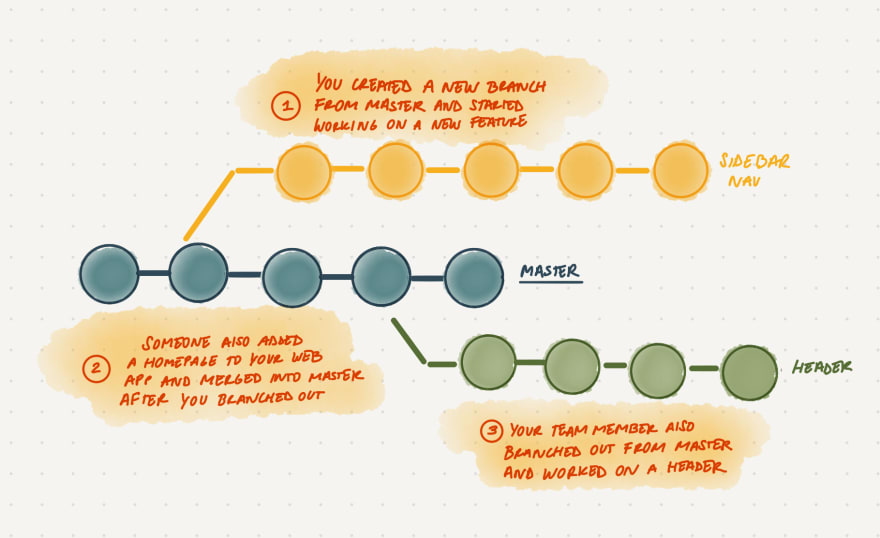 1
YOU CREATED A NEW BRANCH
FROM MASTER AND STARTED
WORKING ON A NEW FEATURE
SIDEBAR
NAV
MASTER
2
SOMEONE ALSO ADDED
A HOMEPAGE TO YOUR WEB
APP AND MERGED INTO MASTER
AFTER YOU BRANCHED OUT
HEADER
3
YOUR TEAM MEMBER ALSO
BRANCHED OUT FROM MASTER
AND WORKED ON A HEADER